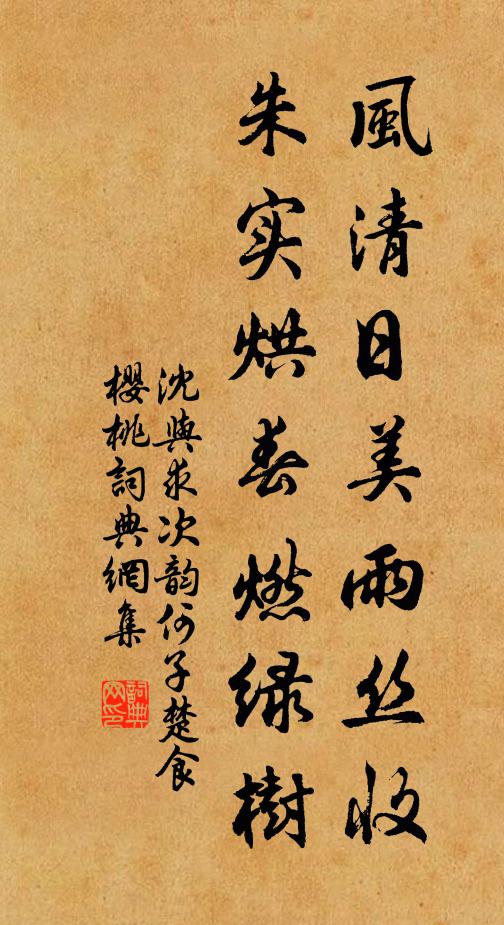 風清日美雨丝收
朱实烘春燃绿樹
沈與求次韵何子楚食
櫻桃詞典網集
詞典
网印